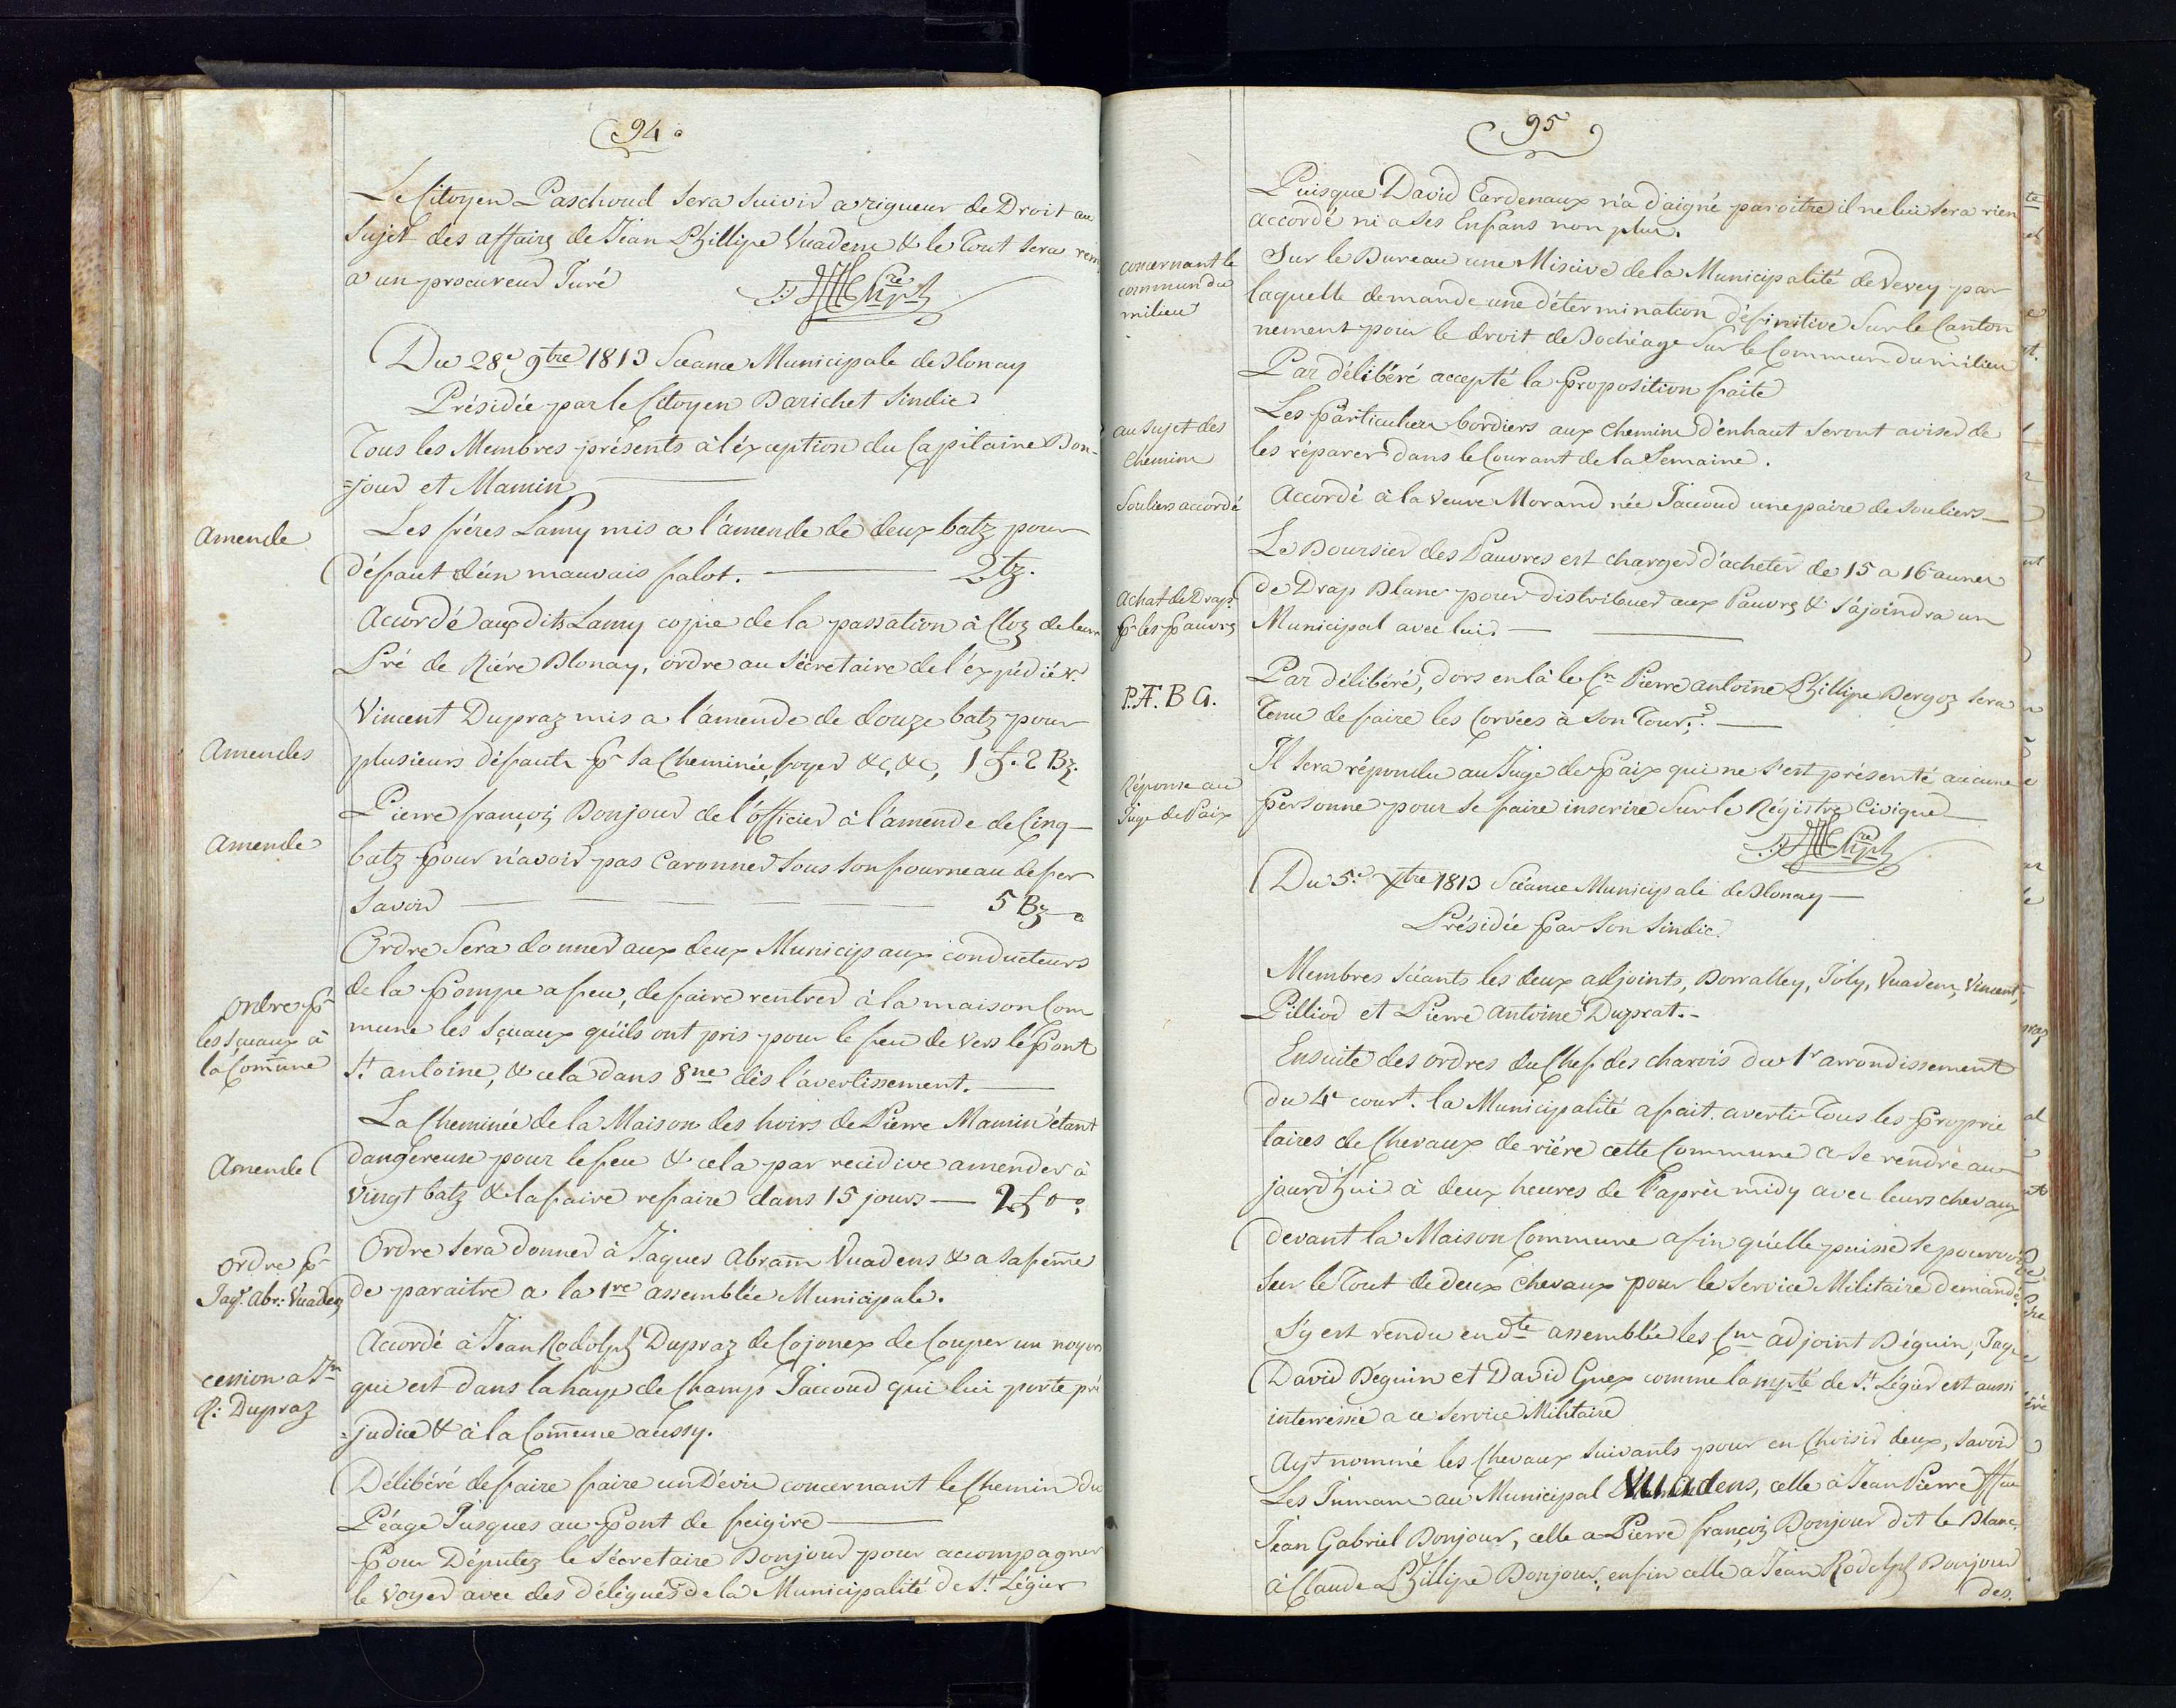 94
Le Citoyen Paschoud sera suivid a rigueur de Droit au
sujet des affairs de Jean Phillipe Vuadens & le Tout sera remi
a un procureur Juré
Du 28e 9bre 1813 Séance Municipale de Blonay
Présidée par le Citoyen Barichet Sindic
Tous les Membres présents à l'éxception du Capitaine Bon-
=jour et Mamin
Amende
Les fréres Lamy mis a l'amende de deux batz pour
défaut d'un mauvais falot. 2 tz.
Accordé auxdits Lamy copie de la passation à Cloz de leur
Pré de Riére Blonay, ordre au Sécretaire de l'éxpédiér.
Amendes
Vincent Dupraz mis a l'amende de douze batz pour
plusieurs défauts pr sa Cheminée, foyer &c, &c, 1 f. 2 Bz.
Amende
Pierre françois Bonjour de l'officier à l'amende de Cinq
batz pour n'avoir pas Caronner sous son fourneau de fer
Savoir 5 Bz
Ordre pr
les Sçeaux à
la Comune
Ordre sera donner aux deux Municipaux conducteurs
de la pompe a feu, de faire rentrer à la maison Com
mune les sçeaux qu'ils ont pris pour le feu de vers le pont
St antoine, & cela dans 8ne dès l'avertissement.
Amende
La Cheminée de la Maison des hoirs de Pierre Mamin étant
dangéreuse pour le feu & cela par recidive amender à
Vingt batz & la faire refaire dans 15 jours 2 f 0
Ordre pr
Jaq: Abr: Vuadens
Ordre sera donner à Jaques Abram Vuadens & a sa feme
de paraitre a la 1re assemblée Municipale.
cession a Jn
R: Dupraz
Accordé à Jean Rodolph Dupraz de Cojonex de Couper un noyer
qui est dans la haye de Champ Jaccoud qui lui porte pré
=judice & à la Comune aussy.
Délibéré de faire faire un Dévis concernant le Chemin du
Péage Jusques au pont de feigire
Pour Députez le Sécretaire Bonjour pour accompagner
le Voyer avec des délégués de la Municipalité de St Légier
95
Puisque David Cardenaux n'a daigné paroitre il ne lui sera rien
accordé ni a ses Enfans non plus.
concernant le
commun du
milieu
Sur le Bureau une Missive de la Municipalité de Vevey par
laquelle demande une détermination définitive Sur le Canton
nement pour le droit de Bochéage sur le Commun du milieu
Par délibéré accepté la proposition faite
au sujet des
Chemins
Les particuliers bordiers aux chemins d'enhaut seront aviser de
les réparer dans le Courant de la Semaine.
Souliers accordé
Accordé à la veuve Morand née Jaccoud une paire de souliers
Achat de Drap
pr les pauvrs
Le Boursier des Pauvres est charger d'acheter de 15 a 16 aunes
de Drap Blanc pour distribuer aux Pauvrs & s'ajoindra un
Municipal avec lui
P. A. B G.
Par délibéré, dors en là le Cn Pierre antoine Phillipe Bergoz sera
Tenu de faire les Corvées à son Tour
Réponse au
Juge de Paix
Il sera répondu au Juge de paix qui ne s'est présenté aucune
personne pour se faire inscrire sur le Régistre Civique
Du 5e Xbre 1813 Séance Municipale de Blonay
Présidée par son Sindic
Membres séants les deux adjoints, Borralley, Joly, Vuadens, Vincent,
Pilliod et Pierre Antoine Duprat.
Ensuite des ordres du Chef des charois du 1r arrondissement
du 4e court. la Municipalité a fait avertir Tous les proprié
taires de Chevaux de riére cette Commune a se rendre au
jourd'hui à deux heures de l'après midy avec leurs chevaux
devant la Maison Commune afin qu'elle puisse se pourvoir
sur le Tout de deux chevaux pour le service Militaire demandé.
S'y est rendu en dte assemblée les Cns adjoint Béguin, Jaqe
David Béguin et David Guex comme la mpté de St Légier est aussi
interréssée a ce service Militaire
Ayt nommé les Chevaux suivants pour en Choisir deux, savoir
Les Jumans au Municipal Vuadens, celle à Jean Pierre ffeu
Jean Gabriel Bonjour, celle a Pierre françois Bonjour dit le Blanc,
à Claude Phillipe Bonjour, enfin celle a Jean Rodolph Bonjour
des.